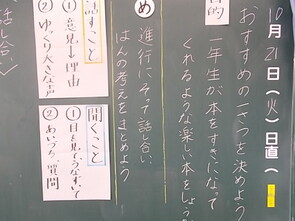 10月21日(火)日直(
おすすめの一さつを決めよう
目的
一年生が本をすきになって
くれるような楽しい本をしょう
め
進行にそって話し合い、
はんの考えをまとめよう
話すこと
①意見→理由
②ゆっくり大きな声
聞くこと
①目を見てうなずいて
②あいづち、質問
話し合い